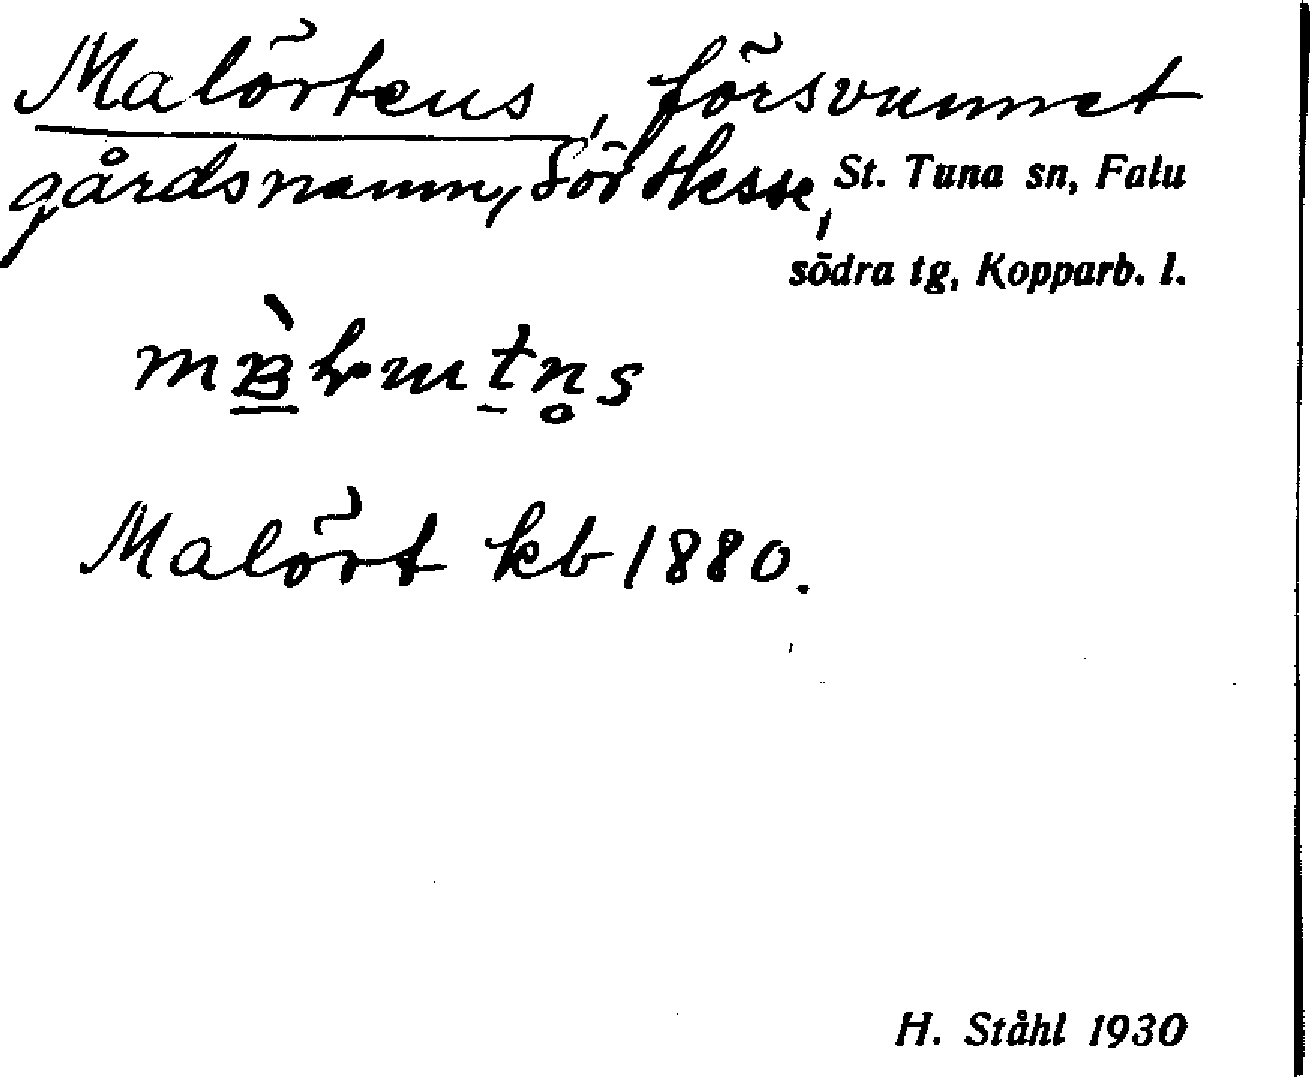 Malörtens, försvunnet
gårdsnamn, Sör Hesse, St. Tuna sn, Falu
södra tg, Kopparb. l.
Malört kb 1880.
H. Ståhl 1930